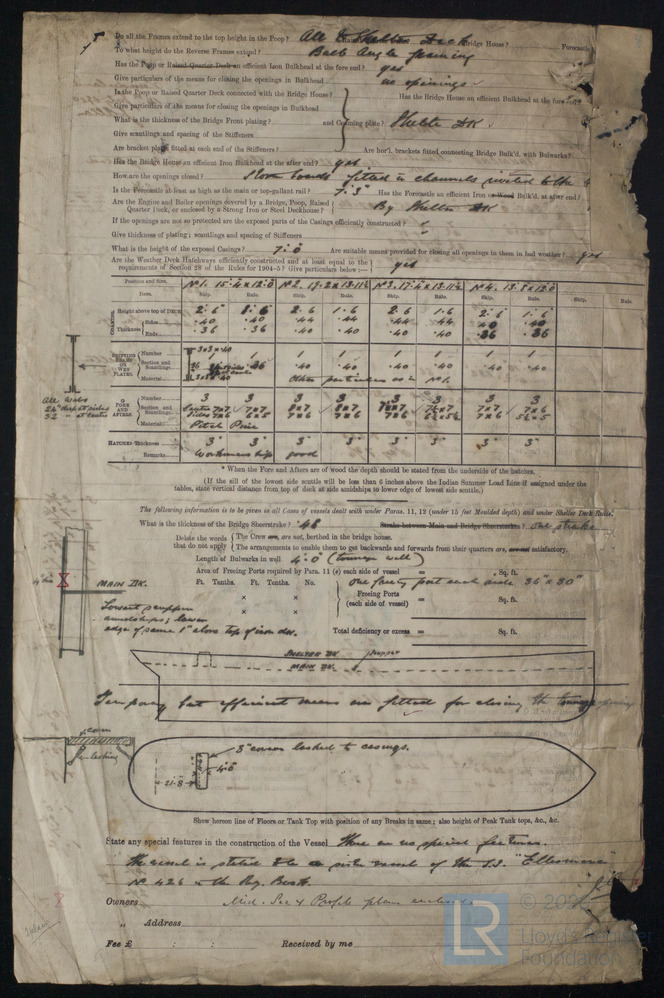 Do all the Frames extend to the top height in the Poop? All to Shelter Deck Bridge House? Forecastle
To what height do the Reverse Frames extend? Bulb Angle framing
Has the Poop or Raised Quarter Deck an efficient Iron Bulkhead at the fore end? yes
Give particulars of the means for closing the openings in Bulkhead no openings
Is the Poop or Raised Quarter Deck connected with the Bridge House? Has the Bridge House an efficient Bulkhead at the fore
Give particulars of the means for closing the openings in Bulkhead
What is the thickness of the Bridge Front plating? and Coaming plate? Shelter DK
Give scantlings and spacing of the Stiffeners
Are bracket plates fitted at each end of the Stiffeners? Are hor'l. brackets fitted connecting Bridge Bulk'd. with Bulwarks?
Has the Bridge House an efficient Iron Bulkhead at the after end? yes
How are the openings closed? Storm boards fitted in channels riveted to the
Is the Forecastle at least as high as the main or top-gallant rail? 7'.3" Has the Forecastle an efficient Iron or Wood Bulk'd. at after end?
Are the Engine and Boiler openings covered by a Bridge, Poop, Raised
Quarter Deck, or enclosed by a Strong Iron or Steel Deckhouse? By Shelter DK
If the openings are not so protected are the exposed parts of the Casings efficiently constructed?
Give thickness of plating; scantlings and spacing of Stiffeners
What is the height of the exposed Casings? 7'.0" Are suitable means provided for closing all openings in them in bad weather? yes
Are the Weather Deck Hatchways efficiently constructed and at least equal to the
requirements of Section 28 of the Rules for 1904-5? Give particulars below:— yes
Position and size. No 1. 15.4 x 12.0 No 2. 17.2 x 13.11½ No 3. 17.4 x 13.11½ No 4. 13.8 x 12.0
Item. Ship. Rule. Ship. Rule. Ship. Rule. Ship. Rule. Ship. Rule.
Height above top of Deck 2.6 1.6 2.6 1.6 2.6 1.6 2.6 1.6
Thickness Sides .40 .40 .44 .44 .44 .44 .40 .40
Ends .36 .36 .40 .40 .40 .40 .36 .36
3x3x.40
Number 1 1 1 1 1 1 1
Section and Scantlings .36 .40 .40 .40 .40 .40 .40
Material 3x3x.40 Other particulars as in No 1.
All Webs
24" deep at sides
32 " at centre
FORE AND AFTERS.
Number 3 3 3 3 3 3 3 3
Section and Scantlings Centre 7x7 7x7 8x7 8x7 7x7 7x6
Sides 7x6 7x5 7x6 7x6 7x6
Material Pitch Pine
HATCHES Thickness 3" 3" 3" 3" 3" 3" 3" 3"
Remarks Workmanship good
* When the Fore and Afters are of wood the depth should be stated from the underside of the hatches.
(If the sill of the lowest side scuttle will be less than 6 inches above the Indian Summer Load Line if assigned under the
tables, state vertical distance from top of deck at side amidships to lower edge of lowest side scuttle.)
The following information is to be given in all Cases of Vessels dealt with under Paras. 11, 12 (under 15 feet Moulded depth) and under Shelter Deck Rules.
What is the thickness of the Bridge Sheerstrake? .46 Strake between Main and Bridge Sheerstrakes? one strake
Delete the words
that do not apply
The Crew are, are not, berthed in the bridge house.
The arrangements to enable them to get backwards and forwards from their quarters are, are not satisfactory.
Length of Bulwarks in well 4.0 (tonnage well)
Area of Freeing Ports required by Para. 11 (c) each side of vessel = Sq. ft.
Ft. Tenths. Ft. Tenths. No. one freeing port each side 36" x 30"
x x Freeing Ports
(each side of vessel) = Sq. ft.
x x
Total deficiency or excess = Sq. ft.
MAIN DK.
Lowest scupper
amidships; lower
edge of same 1" above top of iron dk.
SHELTER DK scupper
MAIN DK.
Temporary but efficient means are fitted for closing the tonnage opening
cover
lashing
3" cover lashed to casings.
4.0
21.8
Show hereon line of Floors or Tank Top with position of any Breaks in same; also height of Peak Tank tops, &c., &c.
State any special features in the construction of the Vessel There are no special features.
The vessel is stated to be a sister vessel of the S.S. "Ellesmere"
No 426 in the Reg. Book.
Owners Mid. Sec & Profile plans enclosed
" Address
Fee £ : : Received by me
LR © 202
Lloyd's Register
Foundation